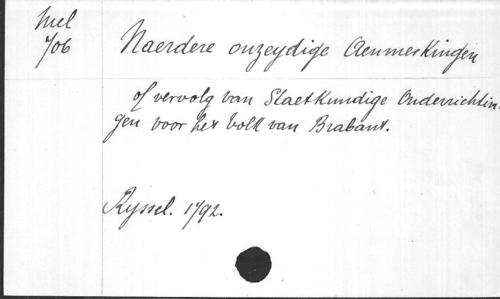 Mel
706
Naerdere onzeydige Aenmerkingen
of vervolg van Staetkundige Onderrichtin-
gen voor het volk van Brabant.
Ryssel. 1792.